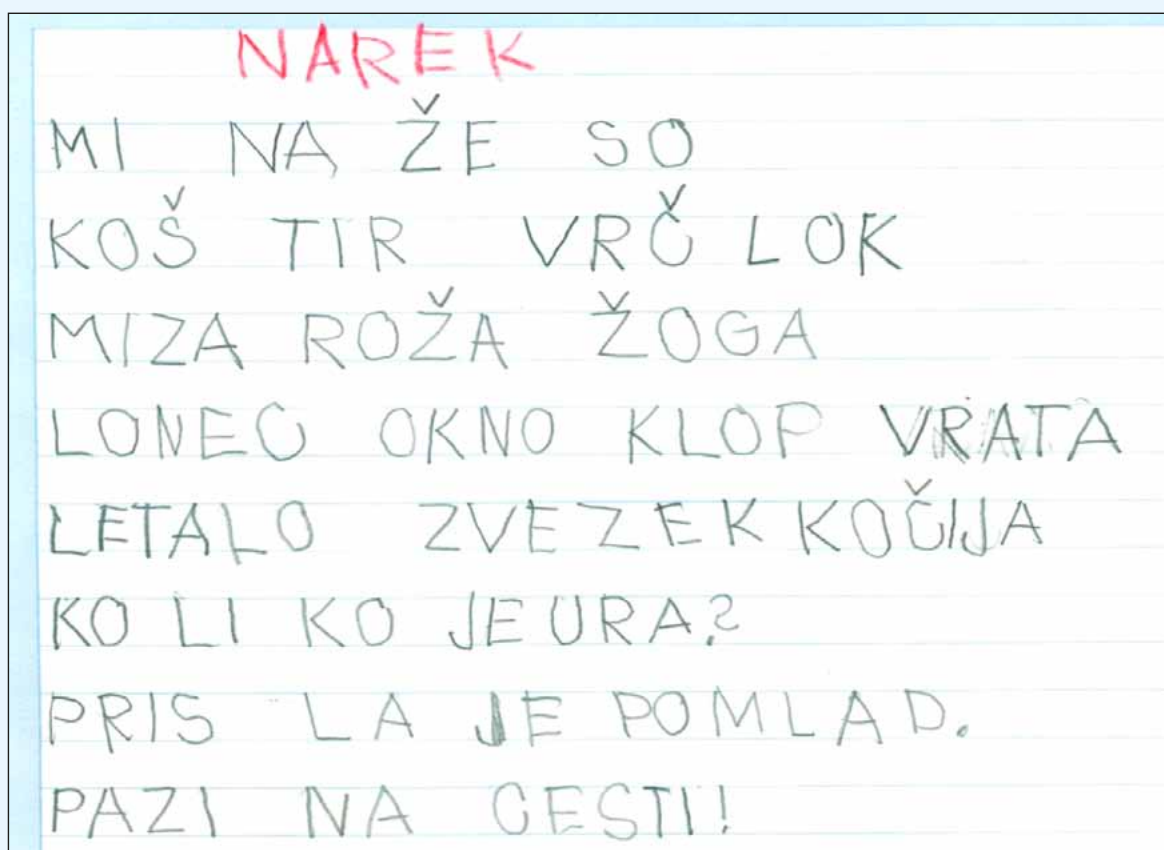 NAREK
MI NA ŽE SO
KOŠ TIR VRČ LOK
MIZA ROŽA ŽOGA
LONEC OKNO KLOP VRATA
LETALO ZVEZEK KOČIJA
KO LI KO JE URA?
PRIS LA JE POMLAD.
PAZI NA CESTI!